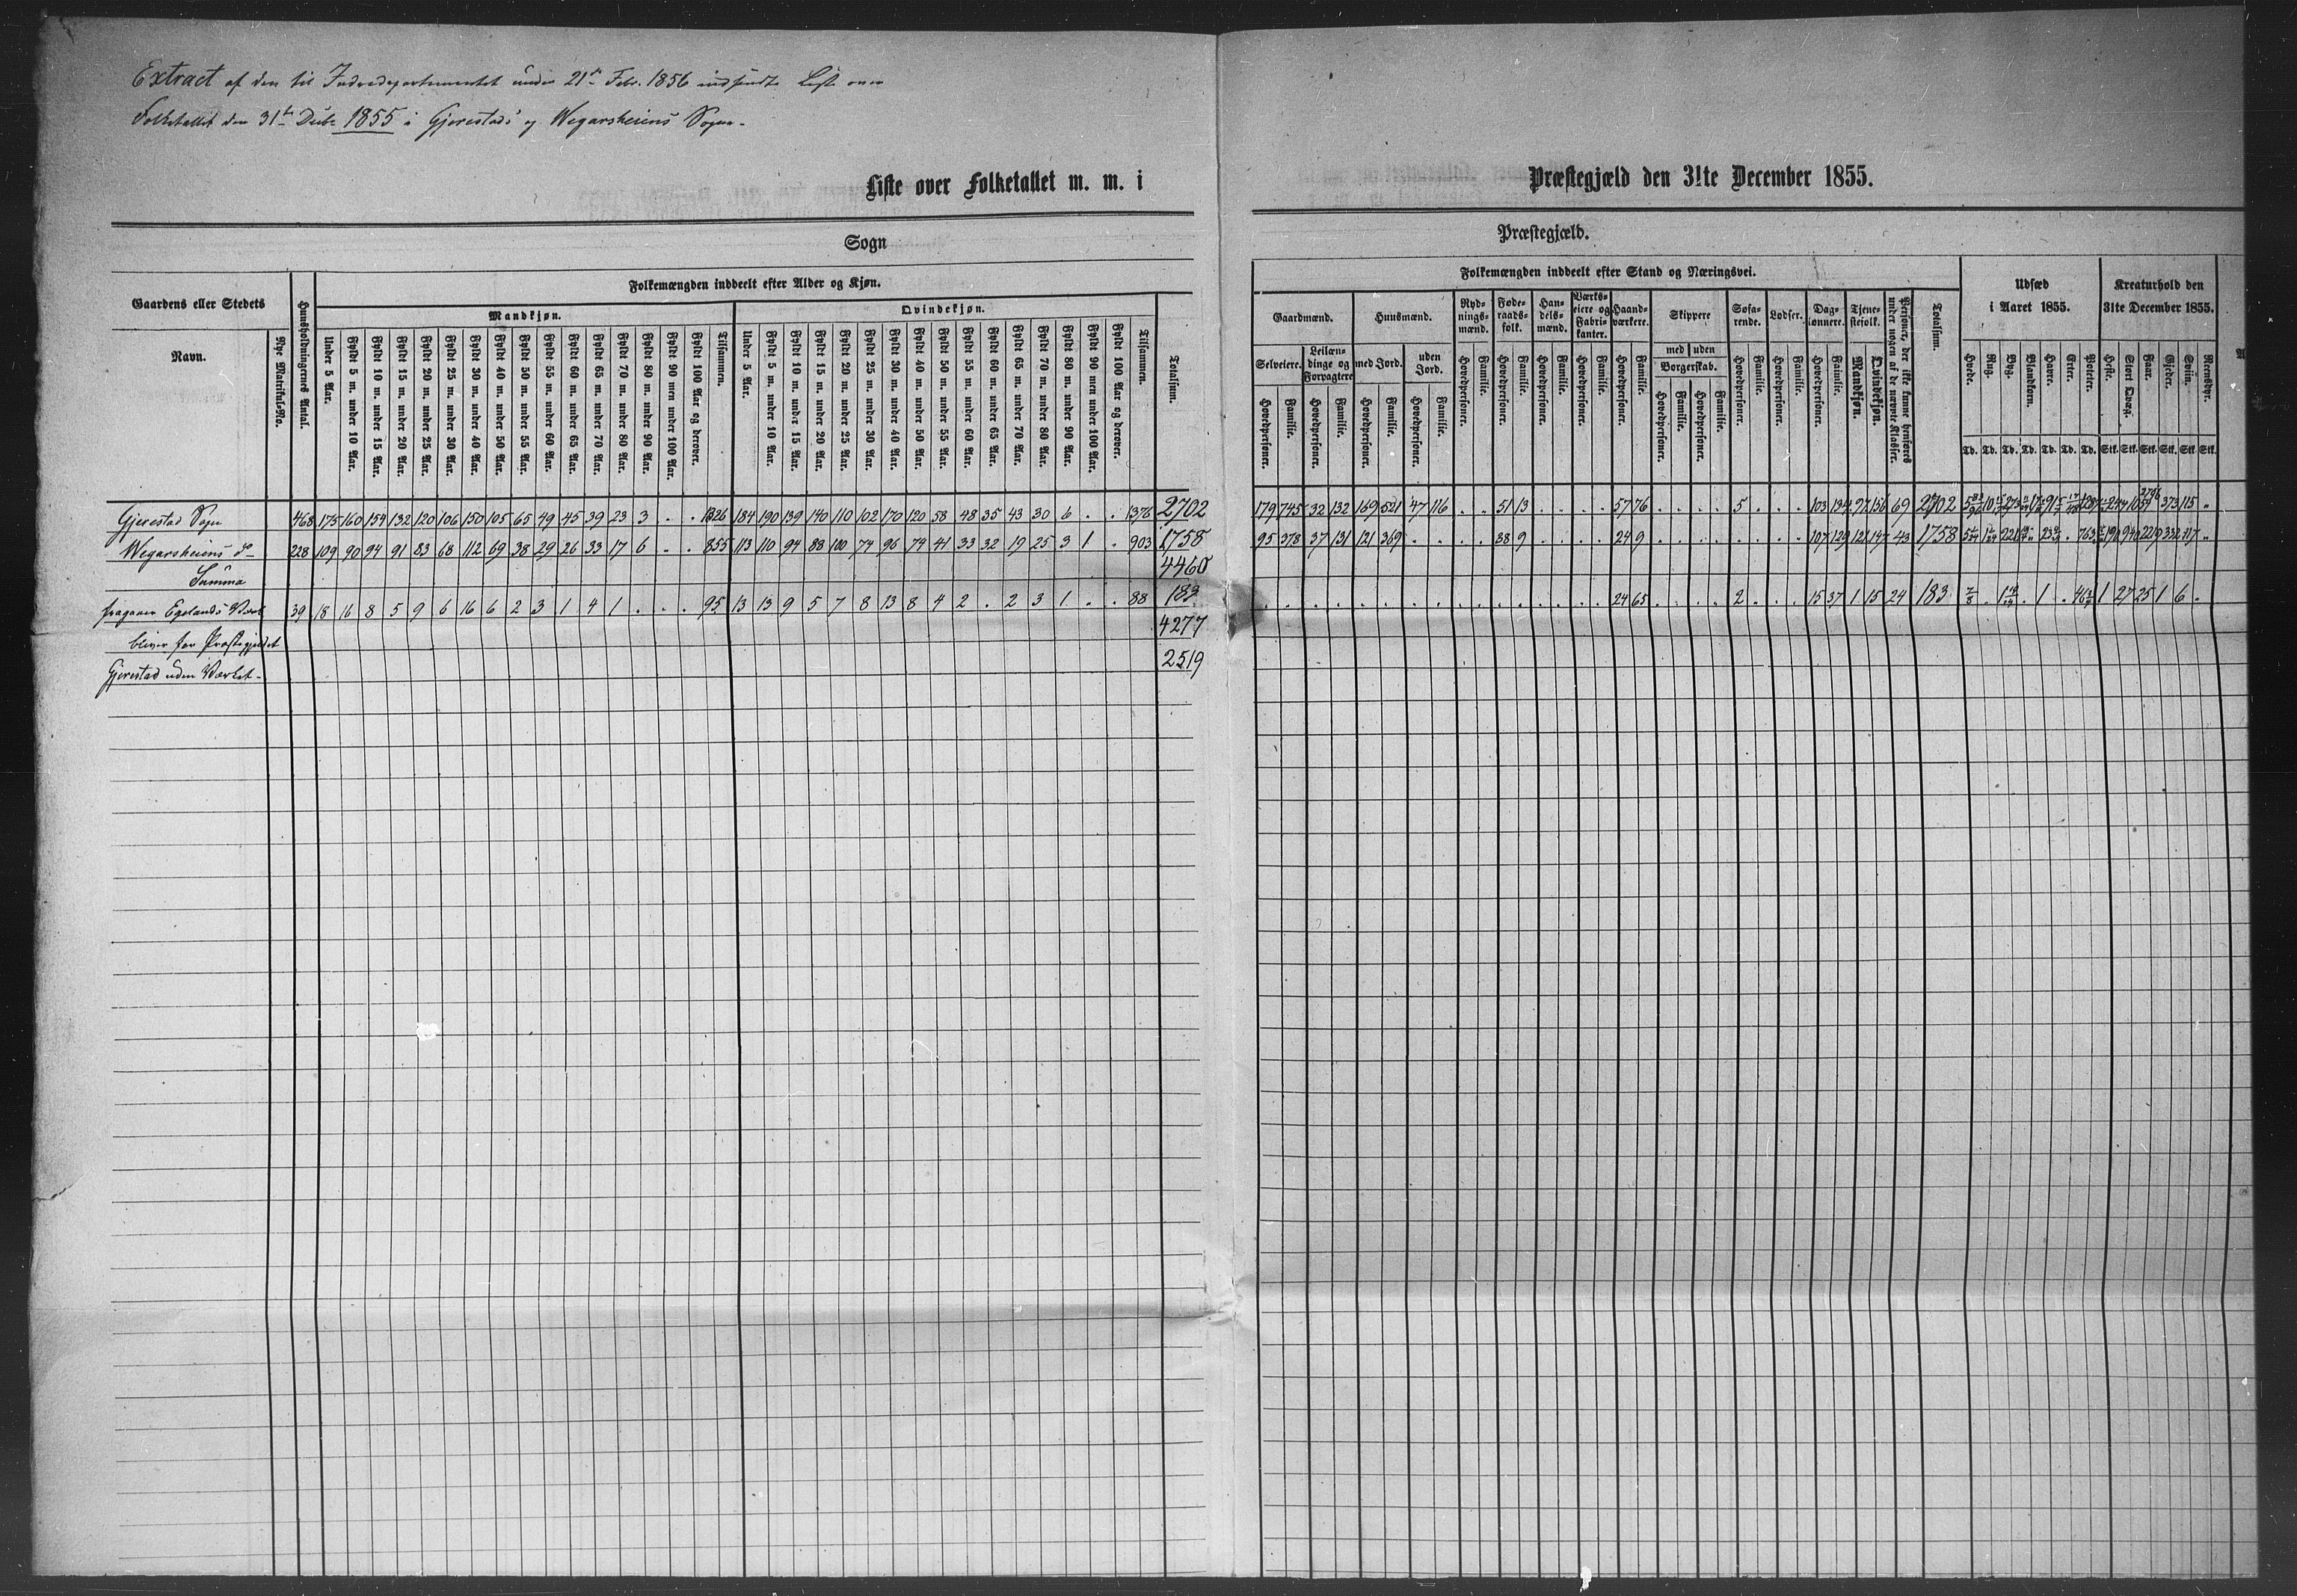 Extract af den til Indredepartementet under 21de Febr. 1856 indsendte Liste over
Folketallet den 31te Decbr 1855 i Gjerestads og Wegarsheiens Sogne.
Liste over Folketallet m. m. i
Sogn
Gaardens eller Stedets
Navn.
Nye Matrikul-No.
Huusholdningernes Antal.
Folkemængden inddeelt efter Alder og Kjøn.
Mandkjøn.
Under 5 Aar.
Fyldt 5 m. under 10 Aar.
Fyldt 10 m. under 15 Aar.
Fyldt 15 m. under 20 Aar.
Fyldt 20 m. under 25 Aar.
Fyldt 25 m. under 30 Aar.
Fyldt 30 m. under 40 Aar.
Fyldt 40 m. under 50 Aar.
Fyldt 50 m. under 55 Aar.
Fyldt 55 m. under 60 Aar.
Fyldt 60 m. under 65 Aar.
Fyldt 65 m. under 70 Aar.
Fyldt 70 m. under 80 Aar.
Fyldt 80 m. under 90 Aar.
Fyldt 90 men under 100 Aar.
Fyldt 100 Aar og derover.
Tilsammen.
Qvindekjøn.
Under 5 Aar.
Fyldt 5 m. under 10 Aar.
Fyldt 10 m. under 15 Aar.
Fyldt 15 m. under 20 Aar.
Fyldt 20 m. under 25 Aar.
Fyldt 25 m. under 30 Aar.
Fyldt 30 m. under 40 Aar.
Fyldt 40 m. under 50 Aar.
Fyldt 50 m. under 55 Aar.
Fyldt 55 m. under 60 Aar.
Fyldt 60 m. under 65 Aar.
Fyldt 65 m. under 70 Aar.
Fyldt 70 m. under 80 Aar.
Fyldt 80 m. under 90 Aar.
Fyldt 90 men under 100 Aar.
Fyldt 100 Aar og derover.
Tilsammen.
Totalsum.
Gjerestad Sogn 468 175 160 154 132 120 106 150 105 65 49 45 39 23 3 . . 1326 184 190 139 140 110 102 170 120 58 48 35 43 30 6 . . 1376 2702
Wegarsheiens do 228 109 90 94 91 83 68 112 69 38 29 26 33 17 6 . . 855 113 110 94 88 100 74 96 74 41 33 32 19 25 3 1 . 903 1758
Summa 4460
fragaaer Egelands Værk 39 18 16 8 5 9 6 16 6 2 3 1 4 1 . . . 95 13 13 9 5 7 8 13 8 4 2 . 2 3 1 . . 88 183
bliver for Præstegjeldet 4277
Gjerestad uden Værket. 2519
Præstegjæld den 31te December 1855.
Præstegjæld.
Folkemængden inddeelt efter Stand og Næringsvei.
Gaardmænd.
Selveiere.
Hovedpersoner.
Familie.
Leilændinge og Forpagtere
Hovedpersoner.
Familie.
Huusmænd.
med Jord.
Hovedpersoner.
Familie.
uden Jord.
Hovedpersoner.
Familie.
Rydningsmænd.
Hovedpersoner.
Familie.
Føderaadsfolk.
Hovedpersoner.
Familie.
Handelsmænd.
Hovedpersoner.
Familie.
Værkseiere og Fabrikanter.
Hovedpersoner.
Familie.
Haandværkere.
Hovedpersoner.
Familie.
Skippere
med uden
Borgerskab.
Hovedpersoner.
Familie.
Hovedpersoner.
Familie.
Søfarende.
Hovedpersoner.
Familie.
Lodser.
Hovedpersoner.
Familie.
Daglønnere.
Hovedpersoner.
Familie.
Tjenestefolk.
Mandkjøn.
Qvindekjøn.
Personer, der ikke kunne henføres under nogen af de nævnte Klasser.
Totalsum.
Udsæd
i Aaret 1855.
Hvede. Rug. Byg. Blandkorn. Havre. Erter. Poteter.
Td. Td. Td. Td. Td. Td. Td.
Kreaturhold den
31te December 1855.
Heste. Stort Qvæg. Faar. Gjeder. Sviin. Reensdyr.
Stk. Stk. Stk. Stk. Stk. Stk.
179 745 32 132 169 521 47 116 . . 51 13 . . . . 57 76 . . . . 5 . . . 103 134 97 156 69 2702 373 115 "
95 378 37 131 121 369 . . . . 38 9 . . . . 24 9 . . . . . . . . 107 129 121 147 43 1758 190 940 2219 332 117 "
24 65 . . . . 2 . . . 15 37 1 15 24 183 1 27 25 1 6 "